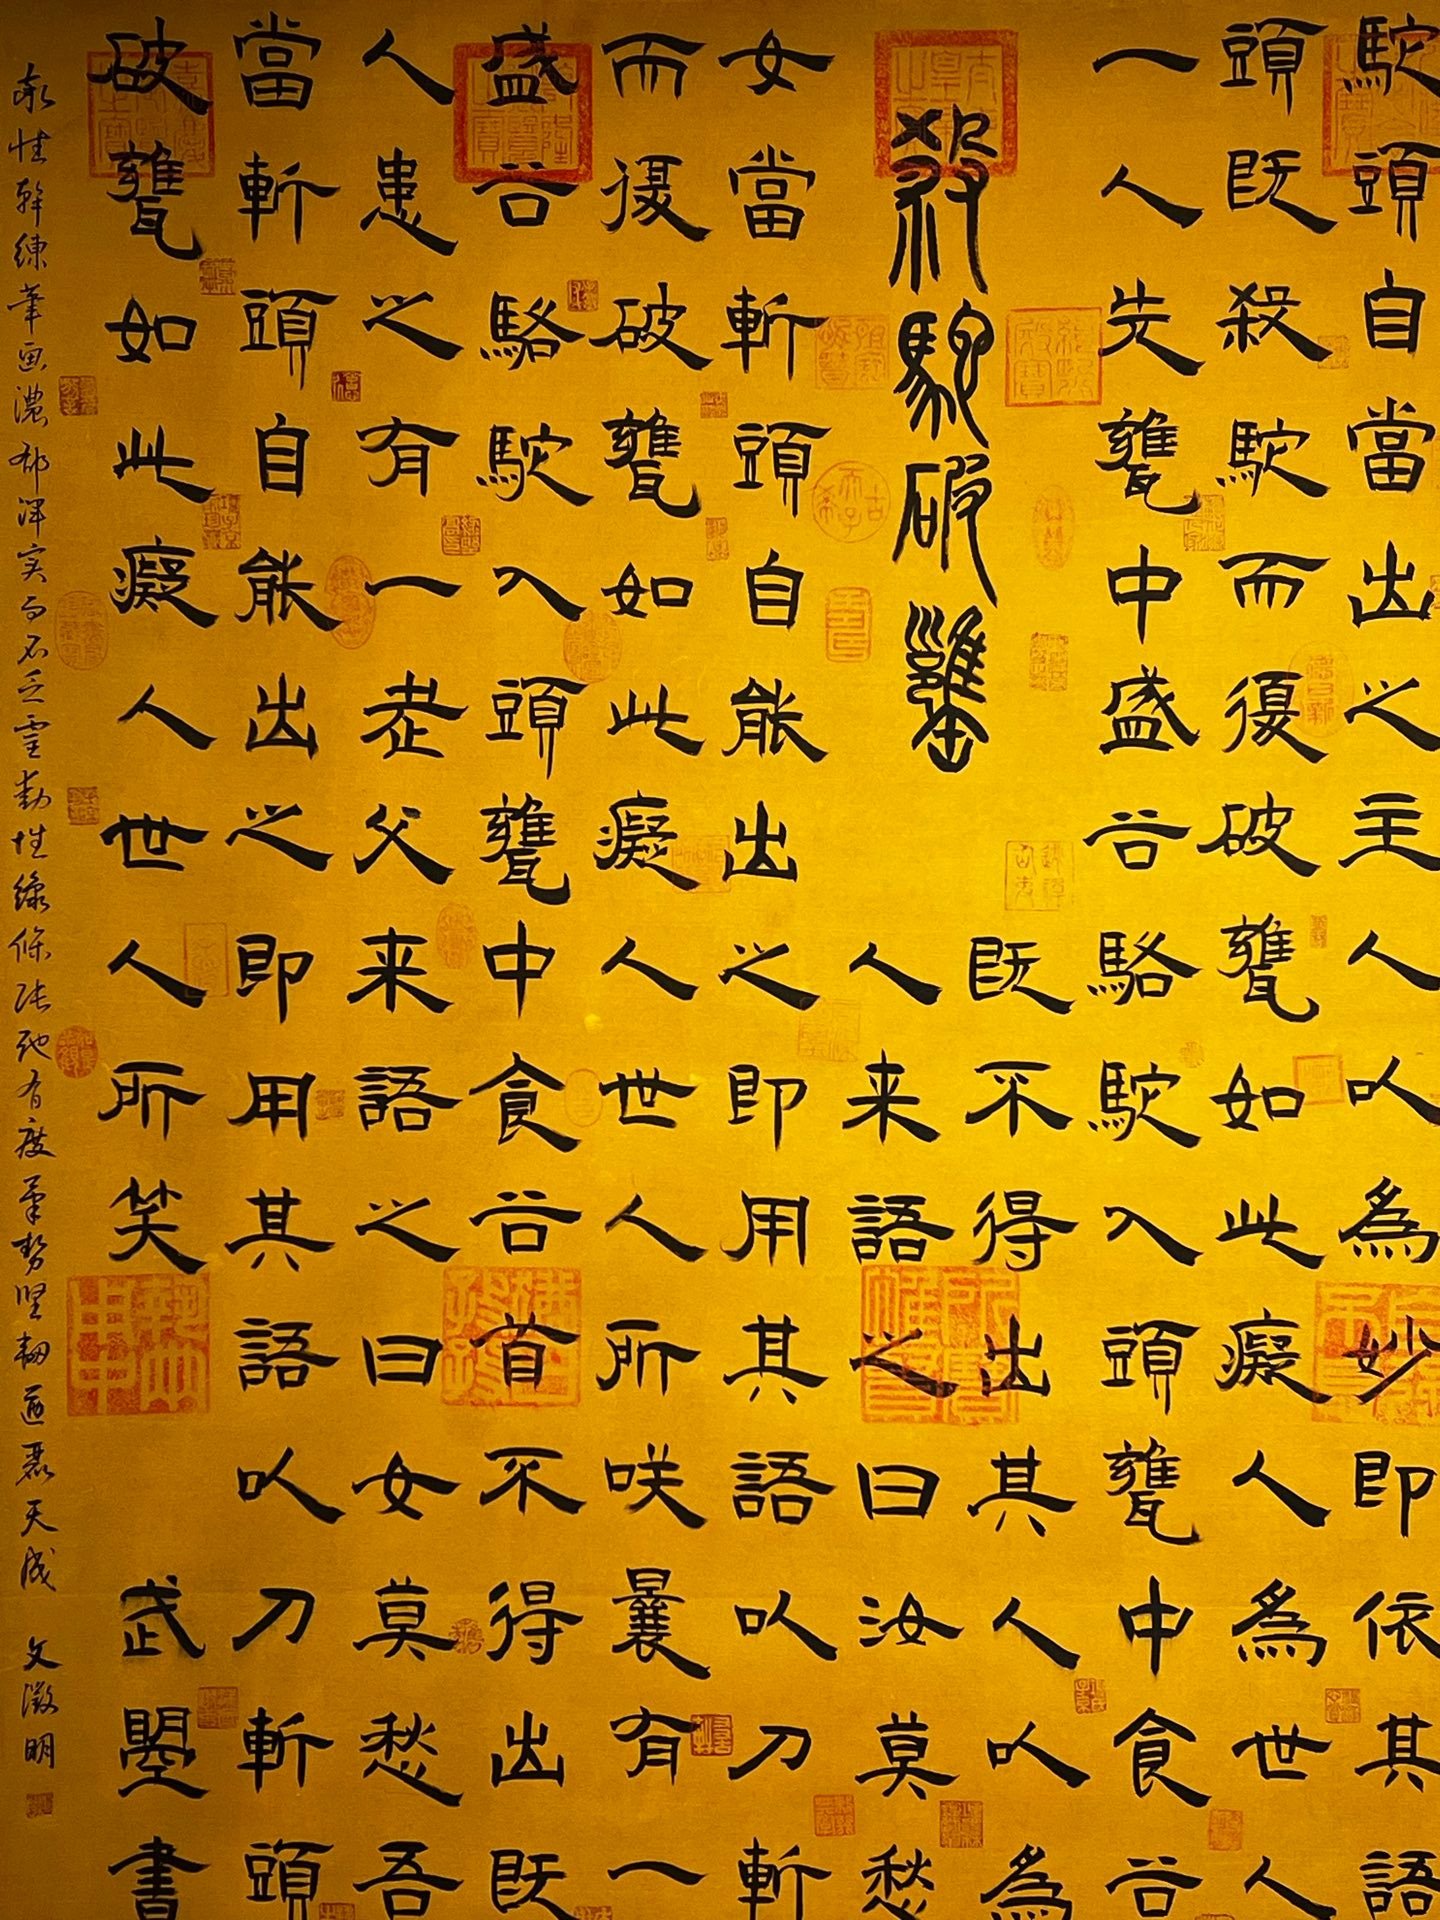 駝頭自當出之主人以為妙即依其語
頭既殺駝而復破甕如此癡人為世人
一人先甕中盛谷駱駝入頭甕中食谷
殺駝破甕
既不得出其人以為
人来語之曰汝莫愁
女當斬頭自能出之即用其語以刀斬
而復破甕如此癡人世人所咲曩有一
盛谷駱駝入頭甕中食谷首不得出既
人患之有一老父来語之曰女莫愁吾
當斬頭自能出之即用其語以刀斬頭
破甕如此癡人世人所笑 武曌書
性幹練筆画濃郁渾实而不乏靈動性線條张弛有度筆势坚韧遒麗天成 文徵明